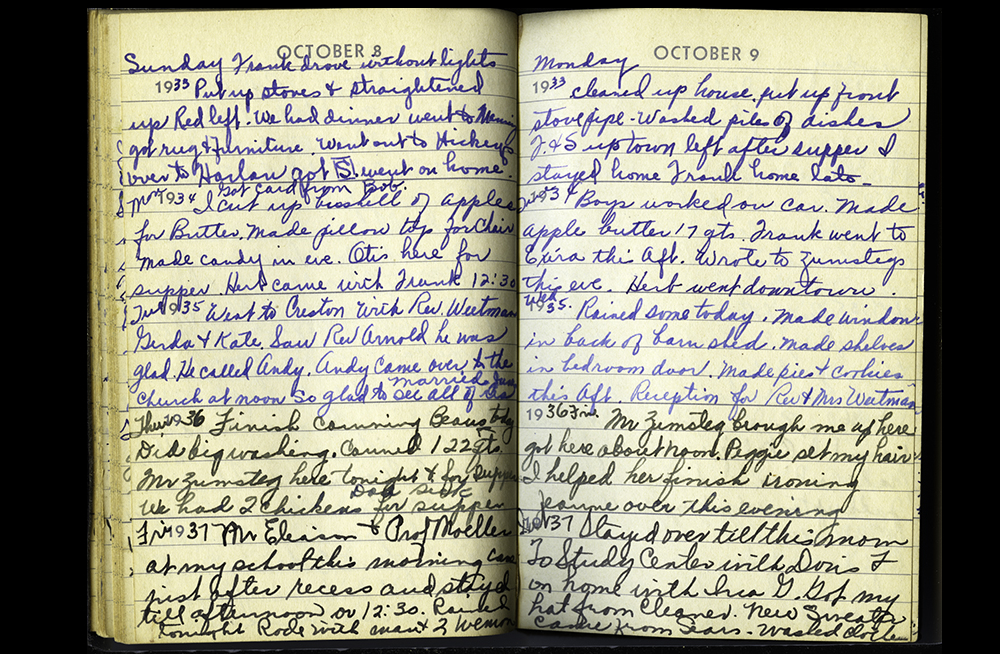 OCTOBER 8
Sunday Frank drove without lights
1933 Put up stoves & straightened
up Red left. We had dinner went to
got rug & furniture. Went out to Hickeys
over to Harlan got S. went on home.
Got card from Bob.
Mon 1934 I cut up bushell of apples
for Butter. Made pillow top for Chair
made candy in eve. Otis here for
supper. Herb came with Frank 12:30
Tue 1935 Went to Creston with Rev. Weitman
Gerda & Kate. Saw Rev Arnold he was
glad. He called Andy. Andy came over to the
married
church at noon so glad to see all of
Thur 1936 Finish canning Beans today
Did big washing. Canned 122 qts.
Mr Zumsteg here tonight & for supper
Dad sick
We had 2 chickens for supper
Fri 1937 Mr Eliason & Prof Moeller
at my school this morning came
just after recess and stayed
till afternoon or 12:30. Rained
tonight Rode with man & 2 women
OCTOBER 9
Monday
1933 cleaned up house. put up front
stovepipe - Washed piles of dishes
J. & S uptown left after supper I
stayed home Frank home late -
1934 Boys worked on car. Made
apple butter 17 qts. Frank went to
this Aft. Wrote to Zumstegs
this eve. Herb went downtown.
Wed 1935. Rained some today. Made window
in back of barn shed. Made shelves
in bedroom door. Made pies & cookies
this Aft. Reception for Rev & Mrs Weitman
1936 Fri. Mr Zumsteg brough me up here
got here about noon. Peggie set my hair &
I helped her finish ironing
Jeanne over this evening
1937 Stayed over till this morn
To Study Center with Doris F
on home with Ina G. Got my
hat from Cleaner. New Sweater
came from Sears. Washed clothes